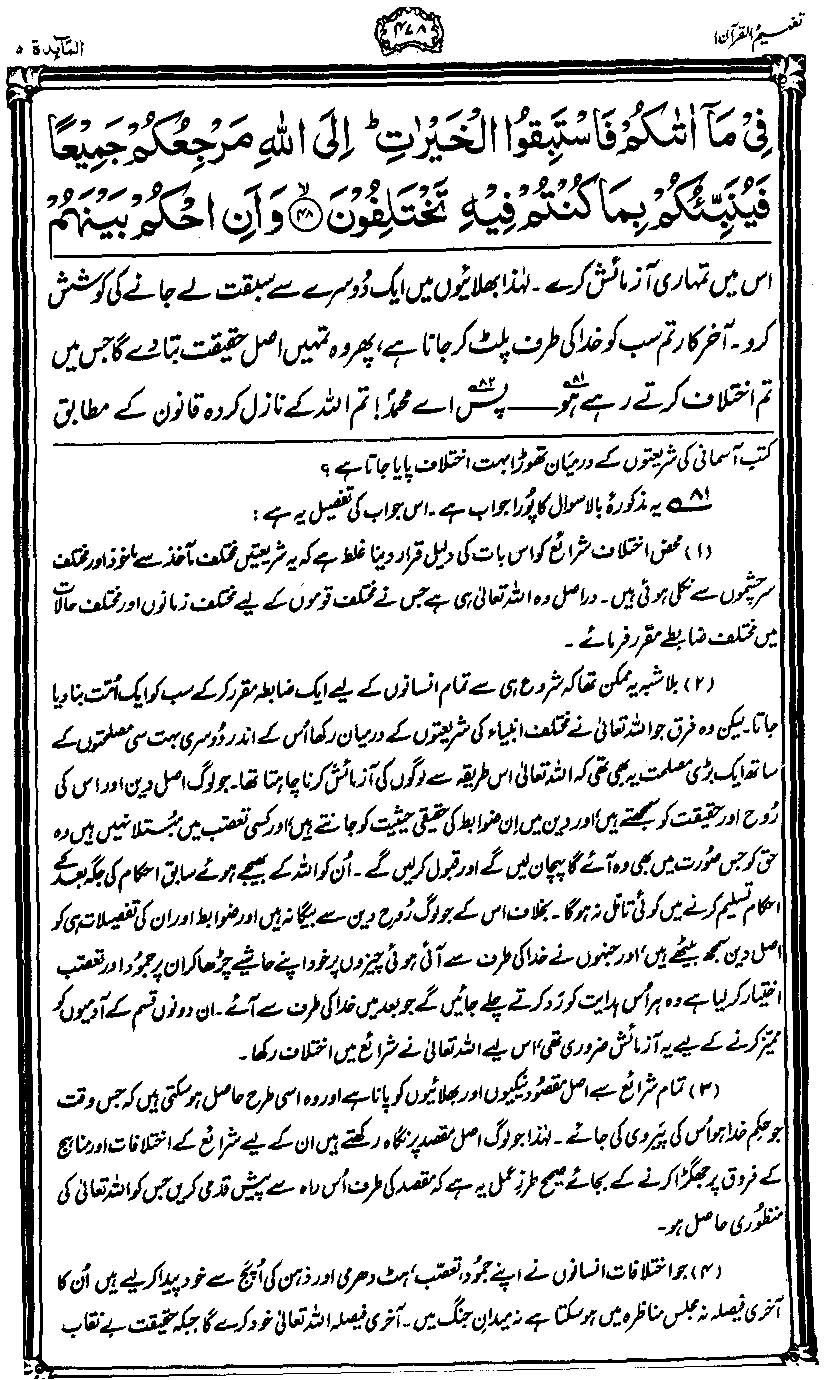 تفہیم القرآن ۱
۴۷۸
المآیدۃ ۵
فِیْ مَاۤ اٰتٰىكُمْ فَاسْتَبِقُوا الْخَیْرٰتِ ؕ اِلَی اللّٰهِ مَرْجِعُكُمْ جَمِیْعًا
فَیُنَبِّئُكُمْ بِمَا كُنْتُمْ فِیْهِ تَخْتَلِفُوْنَ ﴿۴۸﴾ۙ وَ اَنِ احْكُمْ بَیْنَهُمْ
اس میں تمہاری آزمائش کرے۔ لہٰذا بھلائیوں میں ایک دُوسرے سے سبقت لے جانے کی کوشش
کرو۔ آخر کار تم سب کو خدا کی طرف پلٹ کر جانا ہے، پھر وہ تمہیں اصل حقیقت بتا دے گا جس میں
تم اختلاف کرتے رہے ہو۸۱ــــــ پس۸۲ اے محمدؐ! تم اللہ کے نازل کردہ قانون کے مطابق
کتب آسمانی کی شریعتوں کے درمیان تھوڑا بہت اختلاف پایا جاتا ہے؟
۸۱ یہ مذکورۂ بالا سوال کا پُورا جواب ہے۔ اس جواب کی تفصیل یہ ہے:
(۱) محض اختلاف شرائع کو اس بات کی دلیل قرار دینا غلط ہے کہ یہ شریعتیں مختلف مآخذ سے ماخوذ اور مختلف
سرچشموں سے نکلی ہوئی ہیں۔ دراصل وہ اللہ تعالیٰ ہی ہے جس نے مختلف قوموں کے لیے مختلف زمانوں اور مختلف حالات
میں مختلف ضابطے مقرر فرمائے۔
(۲) بلاشبہ یہ ممکن تھا کہ شروع ہی سے تمام انسانوں کے لیے ایک ضابطہ مقرر کر کے سب کو ایک اُمّت بنا دیا
جاتا۔ لیکن وہ فرق جو اللہ تعالیٰ نے مختلف انبیاء کی شریعتوں کے درمیان رکھا اُس کے اندر دُوسری بہت سی مصلحتوں کے
ساتھ ایک بڑی مصلحت یہ بھی تھی کہ اللہ تعالیٰ اس طریقہ سے لوگوں کی آزمائش کرنا چاہتا تھا۔ جو لوگ اصل دین اور اس کی
رُوح اور حقیقت کو سمجھتے ہیں، اور دین میں اِن ضوابط کی حقیقی حیثیت کو جانتے ہیں، اور کسی تعصّب میں مُبتلا نہیں ہیں وہ
حق کو جس صُورت میں بھی وہ آئے گا پہچان لیں گے اور قبول کر لیں گے۔ اُن کو اللہ کے بھیجے ہوئے سابق احکام کی جگہ بعد کے
احکام تسلیم کرنے میں کوئی تامّل نہ ہوگا۔ بخلاف اس کے جو لوگ رُوحِ دین سے بیگانہ ہیں اور ضوابط اور ان کی تفصیلات ہی کو
اصل دین سمجھ بیٹھے ہیں، اور جنہوں نے خدا کی طرف سے آئی ہوئی چیزوں پر خود اپنے حاشیے چڑھا کر ان پر جمود اور تعصّب
اختیار کر لیا ہے وہ ہر اُس ہدایت کو رَد کرتے چلے جائیں گے جو بعد میں خدا کی طرف سے آئے۔ ان دونوں قسم کے آدمیوں کو
ممیّز کرنے کے لیے یہ آزمائش ضروری تھی، اس لیے اللہ تعالیٰ نے شرائع میں اختلاف رکھا۔
(۳) تمام شرائع سے اصل مقصُود نیکیوں اور بھلائیوں کو پانا ہے اور وہ اسی طرح حاصل ہو سکتی ہیں کہ جس وقت
جو حکمِ خدا ہو اُس کی پَیروی کی جائے۔ لہٰذا جو لوگ اصل مقصد پر نگاہ رکھتے ہیں ان کے لیے شرائع کے اختلافات اور مناہج
کے فروق پر جھگڑا کرنے کے بجائے صحیح طرزِ عمل یہ ہے کہ مقصد کی طرف اُس راہ سے پیش قدمی کریں جس کو اللہ تعالیٰ کی
منظُوری حاصل ہو۔
(۴) جو اختلافات انسانوں نے اپنے جمُود، تعصّب، ہٹ دھرمی اور ذہن کی اُپج سے خود پیدا کر لیے ہیں اُن کا
آخری فیصلہ نہ مجلسِ مناظرہ میں ہو سکتا ہے نہ میدانِ جنگ میں۔ آخری فیصلہ اللہ تعالیٰ خود کرے گا جبکہ حقیقت بے نقاب